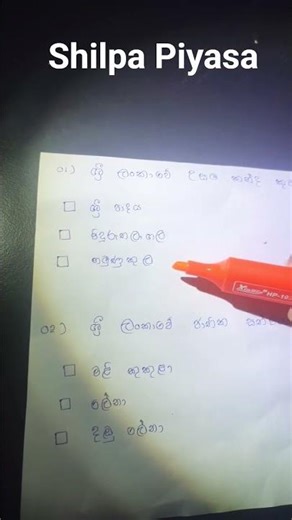 Shilpa Piyasa
01) ශ්‍රී ලංකාවේ උසම කන්ද
ශ්‍රී පාදය
පිදුරුතලාගල
නමුණුකුල
02) ශ්‍රී ලංකාවේ ජාතික
වළි කුකුළා
ලේනා
දඬු ලේනා